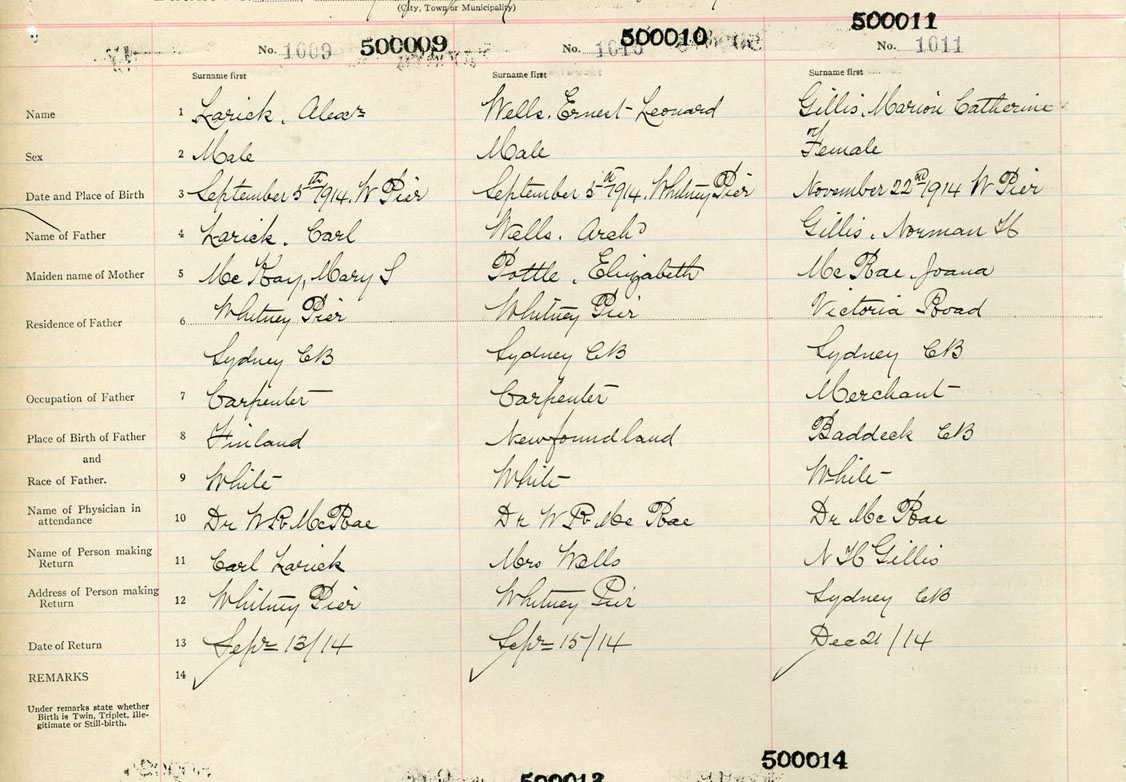 (City, Town or Municipality)
No. 1009 500009 No. 1010 500010 No. 1011 500011
Surname first Surname first Surname first
Name 1 Larick, Alexr Wells, Ernest Leonard Gillis, Marion Catherine
Sex 2 Male Male Female
Date and Place of Birth 3 September 5th 1914, W Pier September 5th 1914, Whitney Pier November 22nd 1914 W Pier
Name of Father 4 Larick, Carl Wells, Archd Gillis, Norman H
Maiden name of Mother 5 Mc Kay, Mary S Pottle, Elizabeth Mc Rae, Joana
Whitney Pier Whitney Pier Victoria Road
Residence of Father 6
Sydney CB Sydney CB Sydney CB
Occupation of Father 7 Carpenter Carpenter Merchant
Place of Birth of Father 8 Finland Newfoundland Baddeck CB
and
Race of Father. 9 White White White
Name of Physician in
attendance 10 Dr W R McRae Dr W R Mc Rae Dr Mc Rae
Name of Person making
Return 11 Carl Larick Mrs Wells N H Gillis
Address of Person making
Return 12 Whitney Pier Whitney Pier Sydney CB
Date of Return 13 Sepr 13/14 Sepr 15/14 Dec 21/14
REMARKS 14
Under remarks state whether
Birth is Twin, Triplet, Ille-
gitimate or Still-birth.
500013 500014